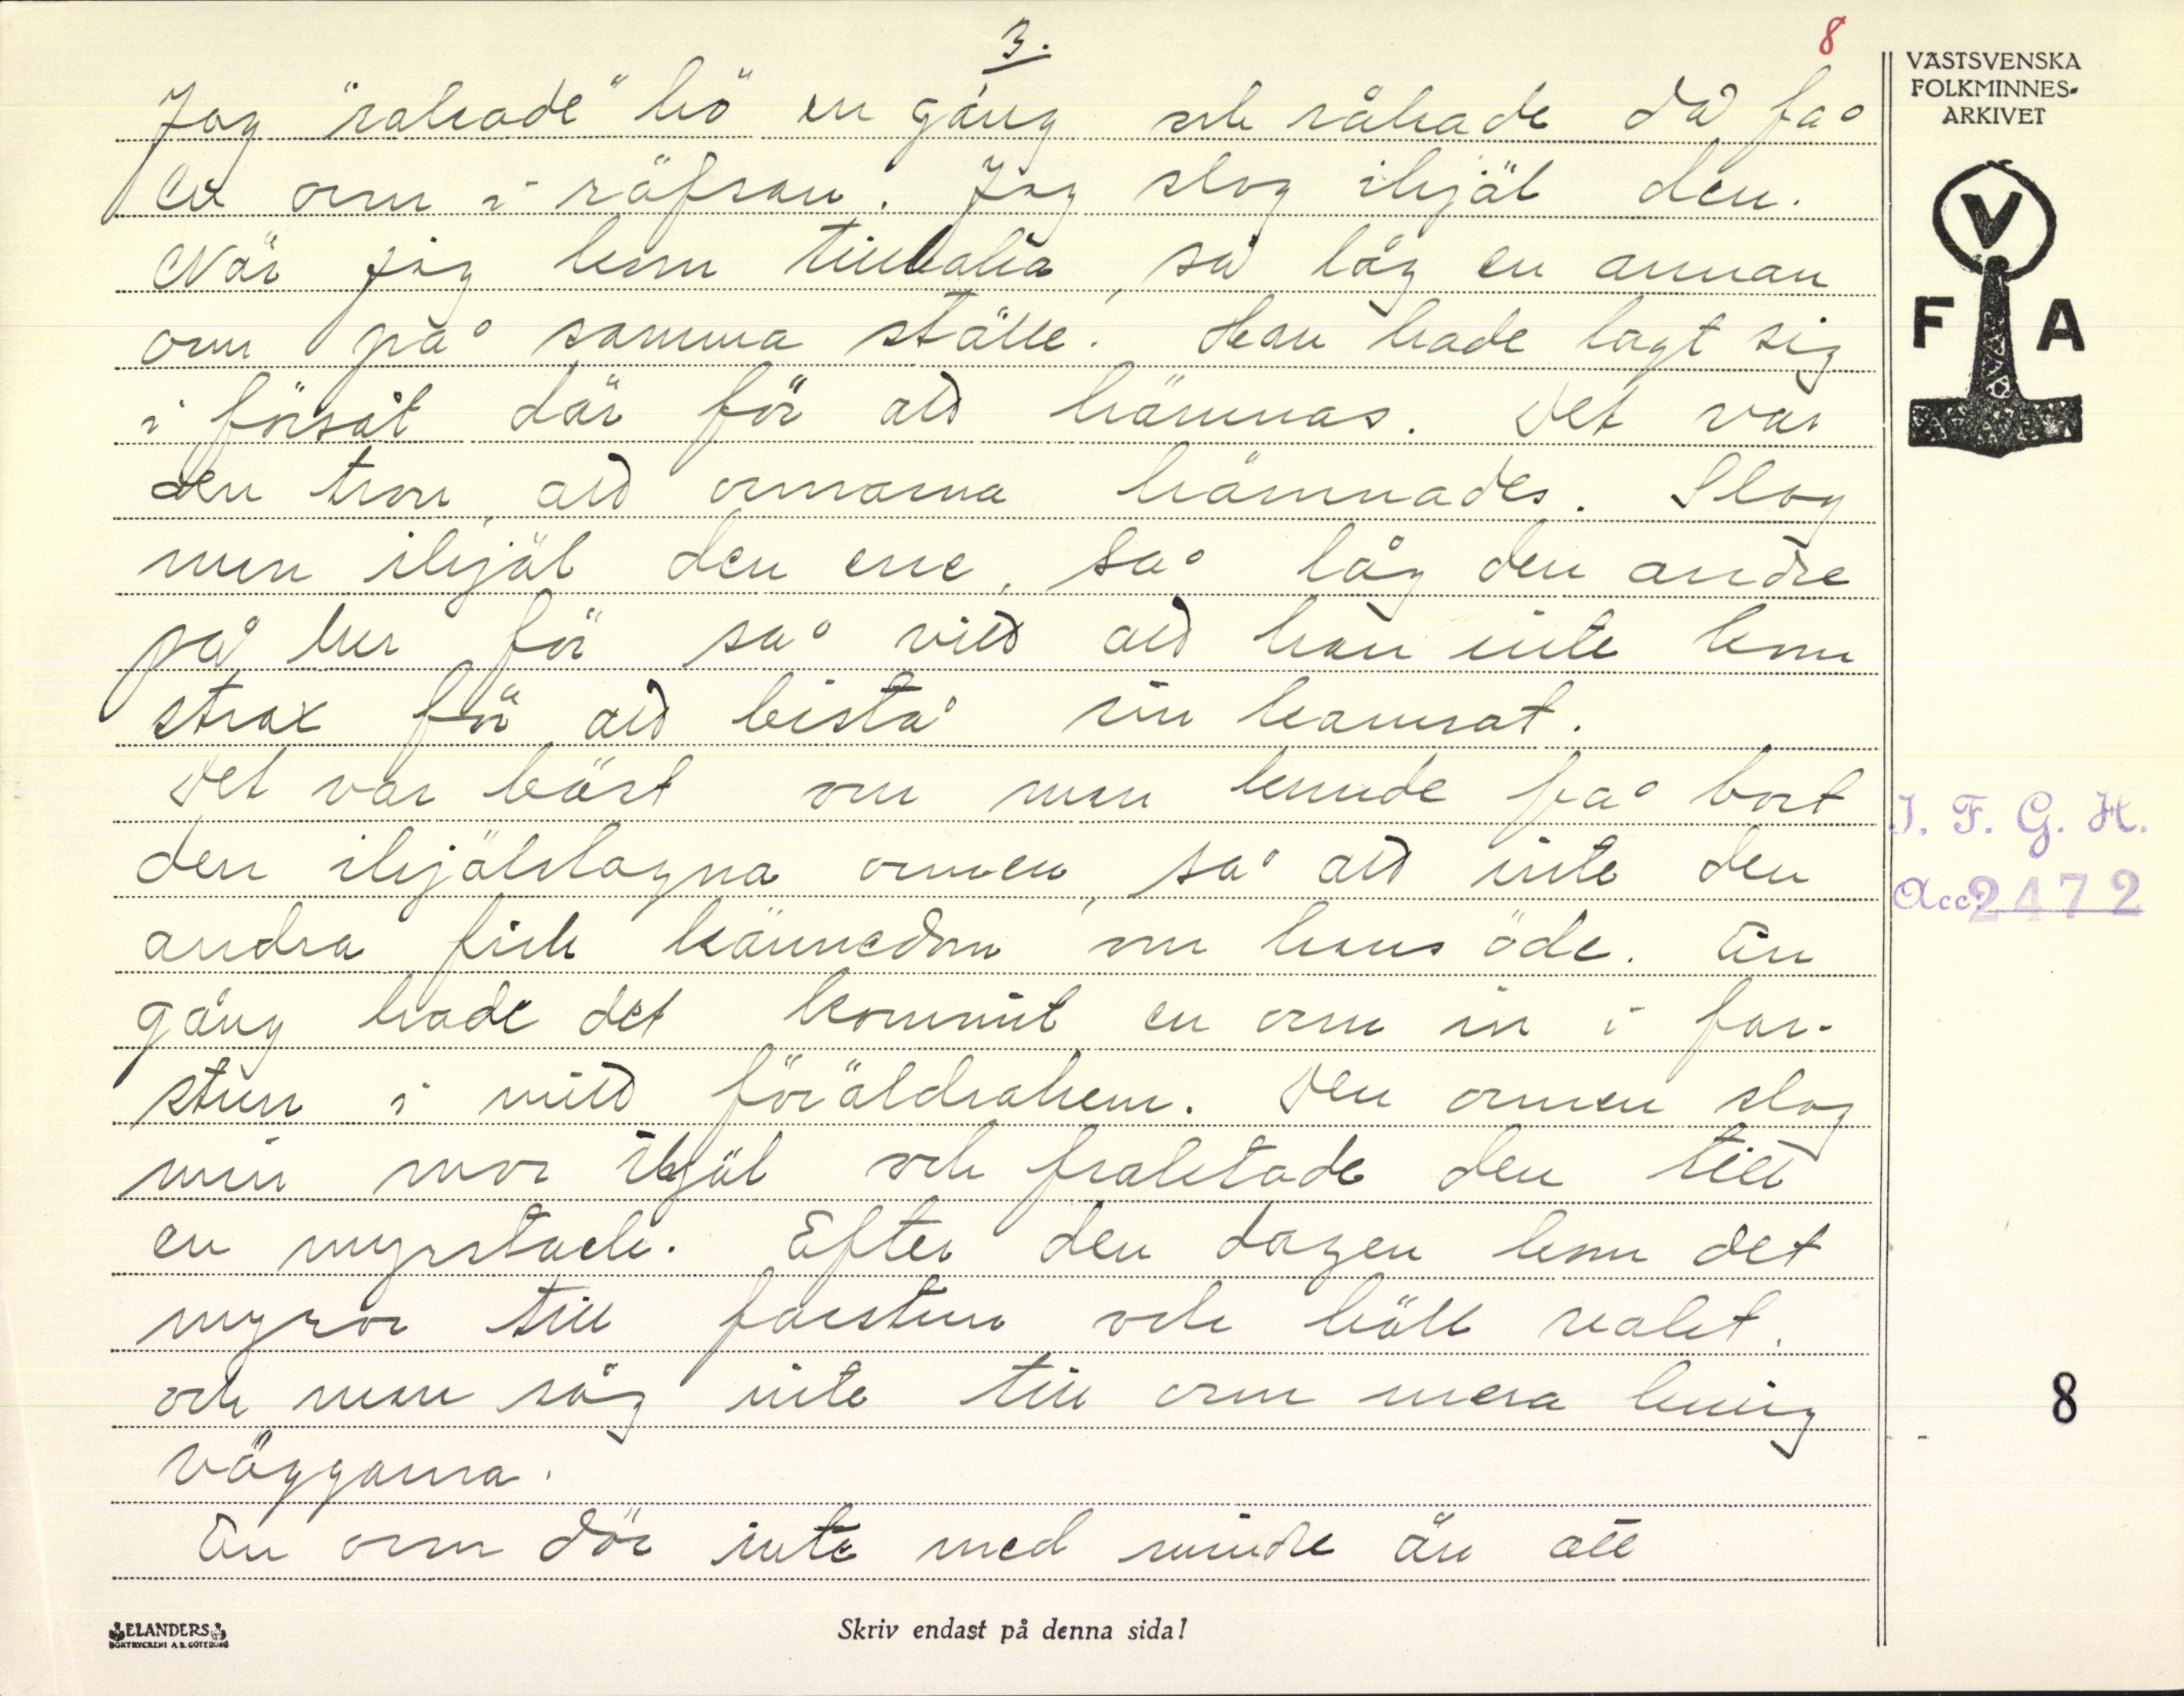 3.
8
Jag "rakade" hö en gång och råkade då få
en orm i räfsan. Jag slog ihjäl den.
När jag kom tillbaka, så låg en annan
orm på samma ställe. Han hade lagt sig
i försåt där för att hämnas. Det var
den tron, att ormarna hämnades. Slog
man ihjäl den ene, så låg den andre
på lur för så vitt att han inte kom
strax för att bistå sin kamrat.
Det var bäst om man kunde få bort
den ihjälslagna ormen, så att inte den
andra fick kännedom om hans öde. En
gång hade det kommit en orm in i far-
stun i mitt föräldrahem. Den ormen slog
min mor ihjäl och fraktade den till
en myrstack. Efter den dagen kom det
myror till farstun och höll vakt,
och man såg inte till orm mera kring
väggarna.
En orm dör inte med mindre än att
VÄSTSVENSKA
FOLKMINNES-
ARKIVET
V
F A
I. F. G. H.
Acc. 2472
8
ELANDERS
BOKTRYCKERI A.B. GÖTEBORG
Skriv endast på denna sida!